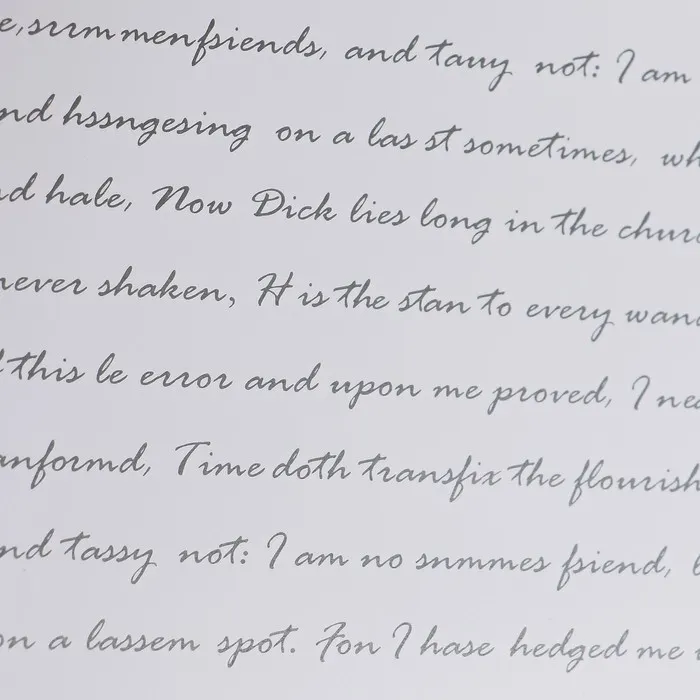 e, surm menfsiends, and tauy not: I am
nd hssngesing on a las st sometimes, wh
nd hale, Now Dick lies long in the churc
never shaken, H is the stan to every wand
this le error and upon me proved, I nea
anformd, Time doth transfix the flourish
nd tassy not: I am no snmmes fsiend, b
on a lassem spot. Fon I hase hedged me